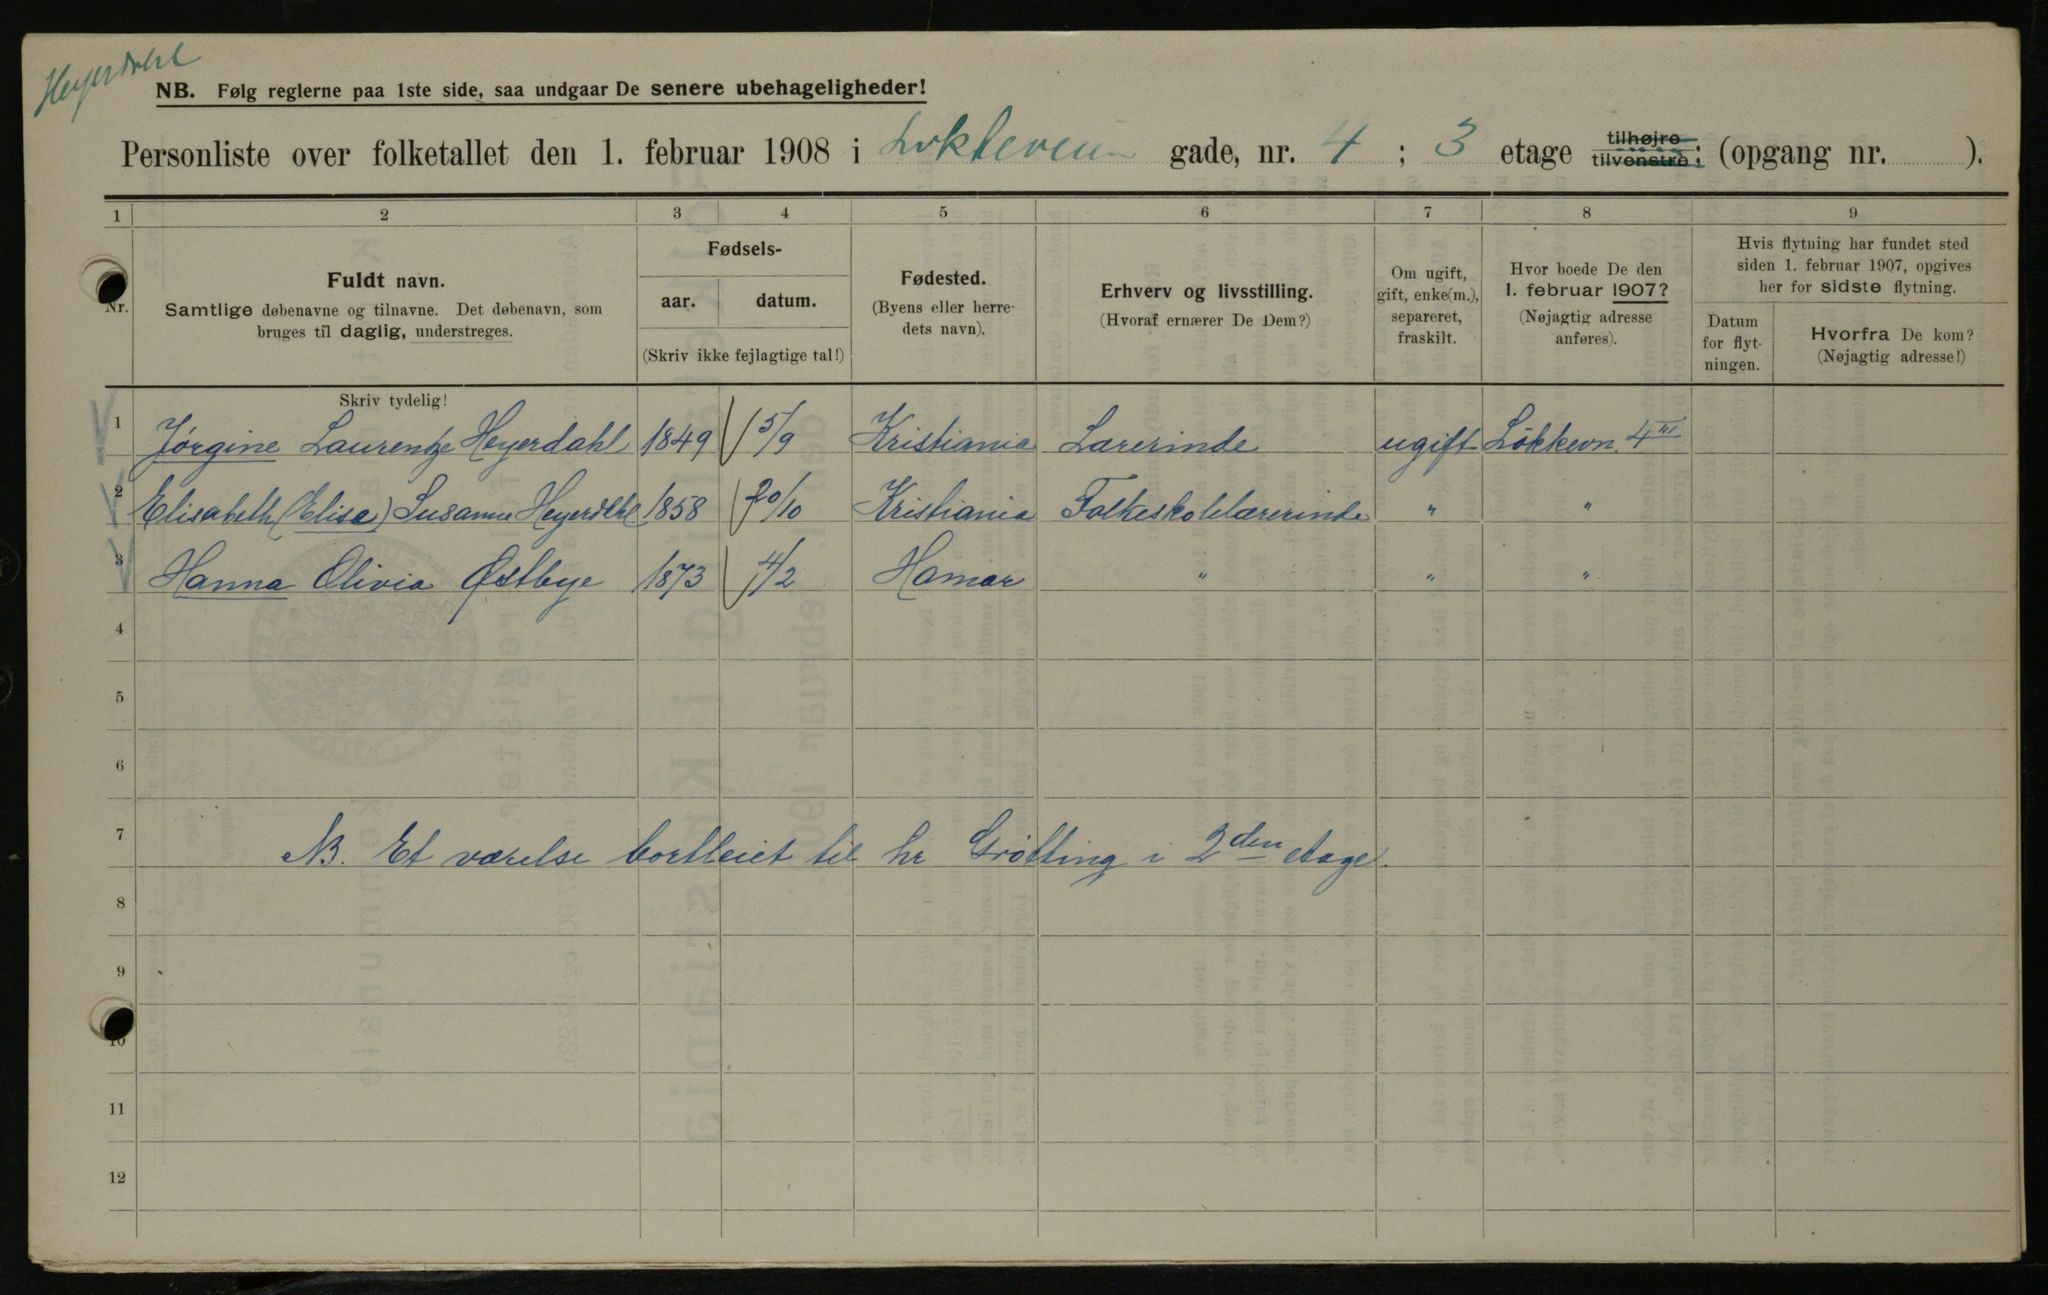 Heyerdahl
NB. Følg reglerne paa 1ste side, saa undgaar De senere ubehageligheder!
Personliste over folketallet den 1. februar 1908 i Løkkeveien gade, nr. 4 ; 3 etage tilhøjre tilvenstre; (opgang nr. ).
1 2 3 4 5 6 7 8 9
Nr.
Fuldt navn.
Samtlige døbenavne og tilnavne. Det døbenavn, som
bruges til daglig, understreges.
Fødsels-
aar. datum.
(Skriv ikke fejlagtige tal!)
Fødested.
(Byens eller herre-
dets navn).
Erhverv og livsstilling.
(Hvoraf ernærer De Dem?)
Om ugift,
gift, enke(m.),
separeret,
fraskilt.
Hvor boede De den
1. februar 1907?
(Nøjagtig adresse
anføres).
Hvis flytning har fundet sted
siden 1. februar 1907, opgives
her for sidste flytning.
Datum
for flyt-
ningen.
Hvorfra De kom?
(Nøjagtig adresse!)
Skriv tydelig!
1 Jørgine Laurentze Heyerdahl 1849 5/9 Kristiania Lærerinde ugift Løkkevn. 4 III
2 Elisabeth (Elise) Susanne Heyerdahl 1858 20/10 Kristiania Folkeskolelærerinde " "
3 Hanna Olivia Østbye 1873 4/2 Hamar " " "
4
5
6
7 NB. Et værelse bortleiet til hr Grøtting i 2den etage.
8
9
10
11
12